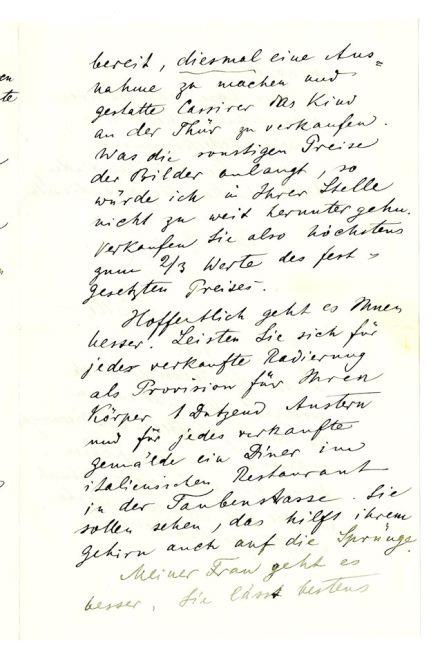 en
te
bereit, diesmal eine Aus=
nahme zu machen und
gestatte Cassirer das Kind
an der Thür zu verkaufen.
Was die sonstigen Preise
der Bilder anlangt, so
würde ich in Ihrer Stelle
nicht zu weit herunter gehn.
Verkaufen Sie also höchstens
zum 2/3 Werte des fest
gesetzten Preises.
Hoffentlich geht es Ihnen
besser. Leisten Sie sich für
jedes verkaufte Radierung
als Provision für Ihren
Körper 1 Dutzend Austern
und für jedes verkaufte
Gemälde ein Diner im
italienischen Restaurant
in der Taubenstrasse. Sie
sollen sehen, das hilft ihrem
Gehirn auch auf die Sprünge.
Meiner Frau geht es
besser. Sie lässt bestens